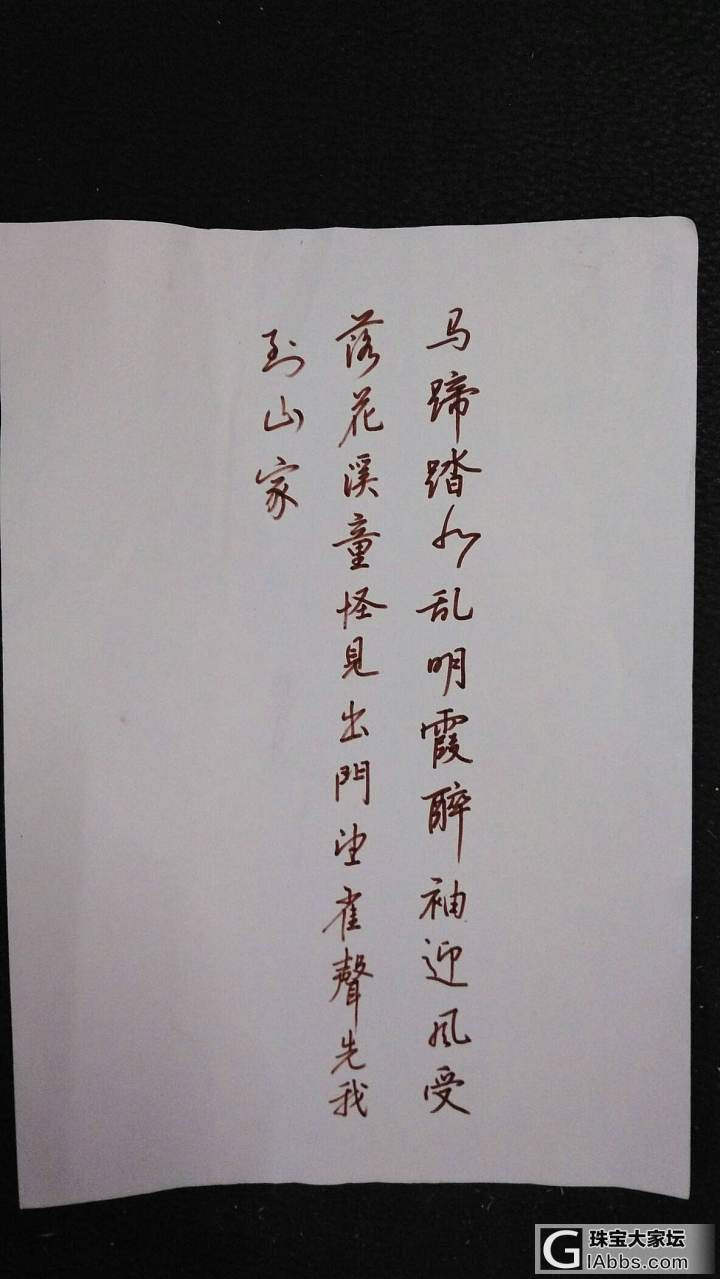 马蹄踏水乱明霞醉袖迎风受
落花溪童怪見出門望雀聲先我
到山家
珠宝大家坛
GIAbbs.com